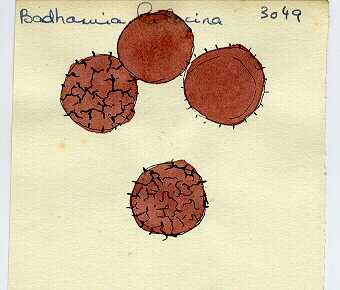 Badhamia lilacina 3049